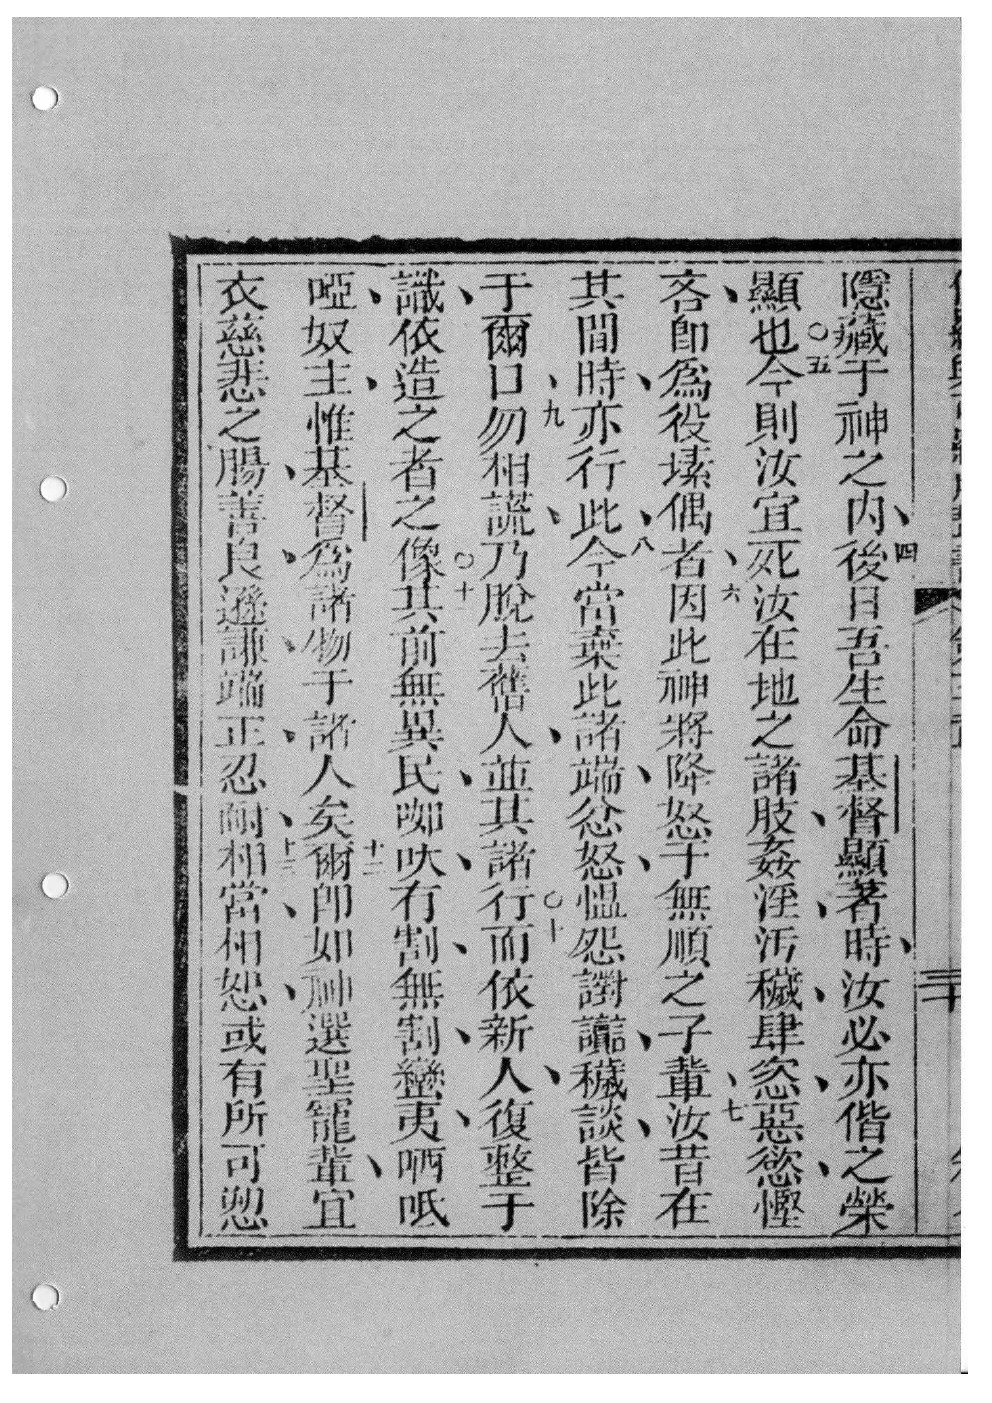 隱藏于神之内、四後日吾生命基督顯著時、汝必亦偕之榮
顯也〇五今則汝宜死汝在地之諸肢、姦淫、汚穢、肆恣、惡慾、慳
吝、卽爲役壉偶者、六因此神將降怒于無順之子輩、七汝昔在
其間時、亦行此、八今當棄此諸端、忿怒、慍怨、讟讒、穢談、皆除
于爾口、九勿相謊、乃脫去舊人、並其諸行〇十而依新人、復整于
識、依造之者之像〇十一其前無異民、咖吠、有割、無割、蠻夷、哂呧
啞、奴主、惟基督爲諸物于諸人矣十二爾卽如神選聖寵輩、宜
衣慈悲之腸、善良、遜謙、端正、忍耐、十三相當、相恕、或有所可愬
三十